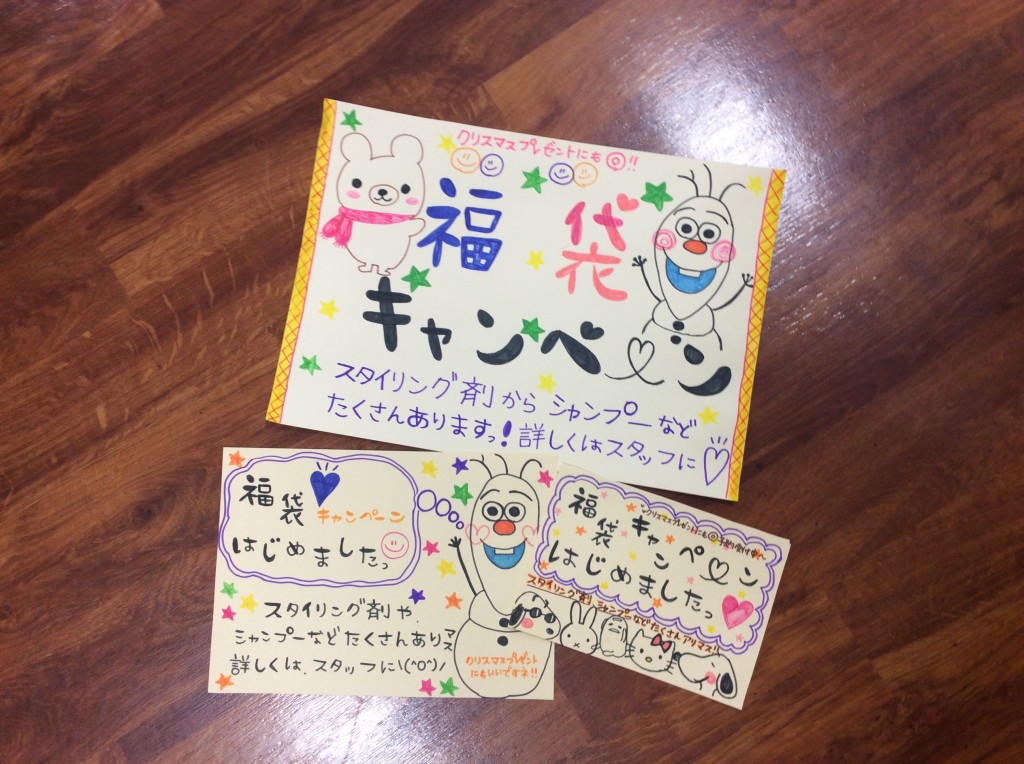 クリスマスプレゼントにも◎!!
福袋
キャンペーン
スタイリング剤からシャンプーなど
たくさんありますっ!詳しくはスタッフに♡
福袋キャンペーン
はじめましたっ
スタイリング剤や
シャンプーなどたくさんありマス
詳しくは、スタッフに\(^o^)/
クリスマスプレゼント
にもいいですネ!!
クリスマスプレゼントにも◎予約受付中〜
福袋キャンペーン
はじめましたっ
スタイリング剤、シャンプーなどたくさんアリマス!!